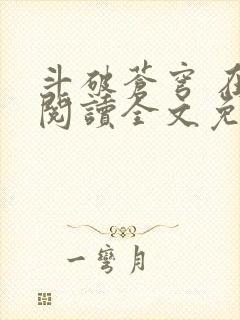 斗破蒼穹
閱讀全文免
一彎月